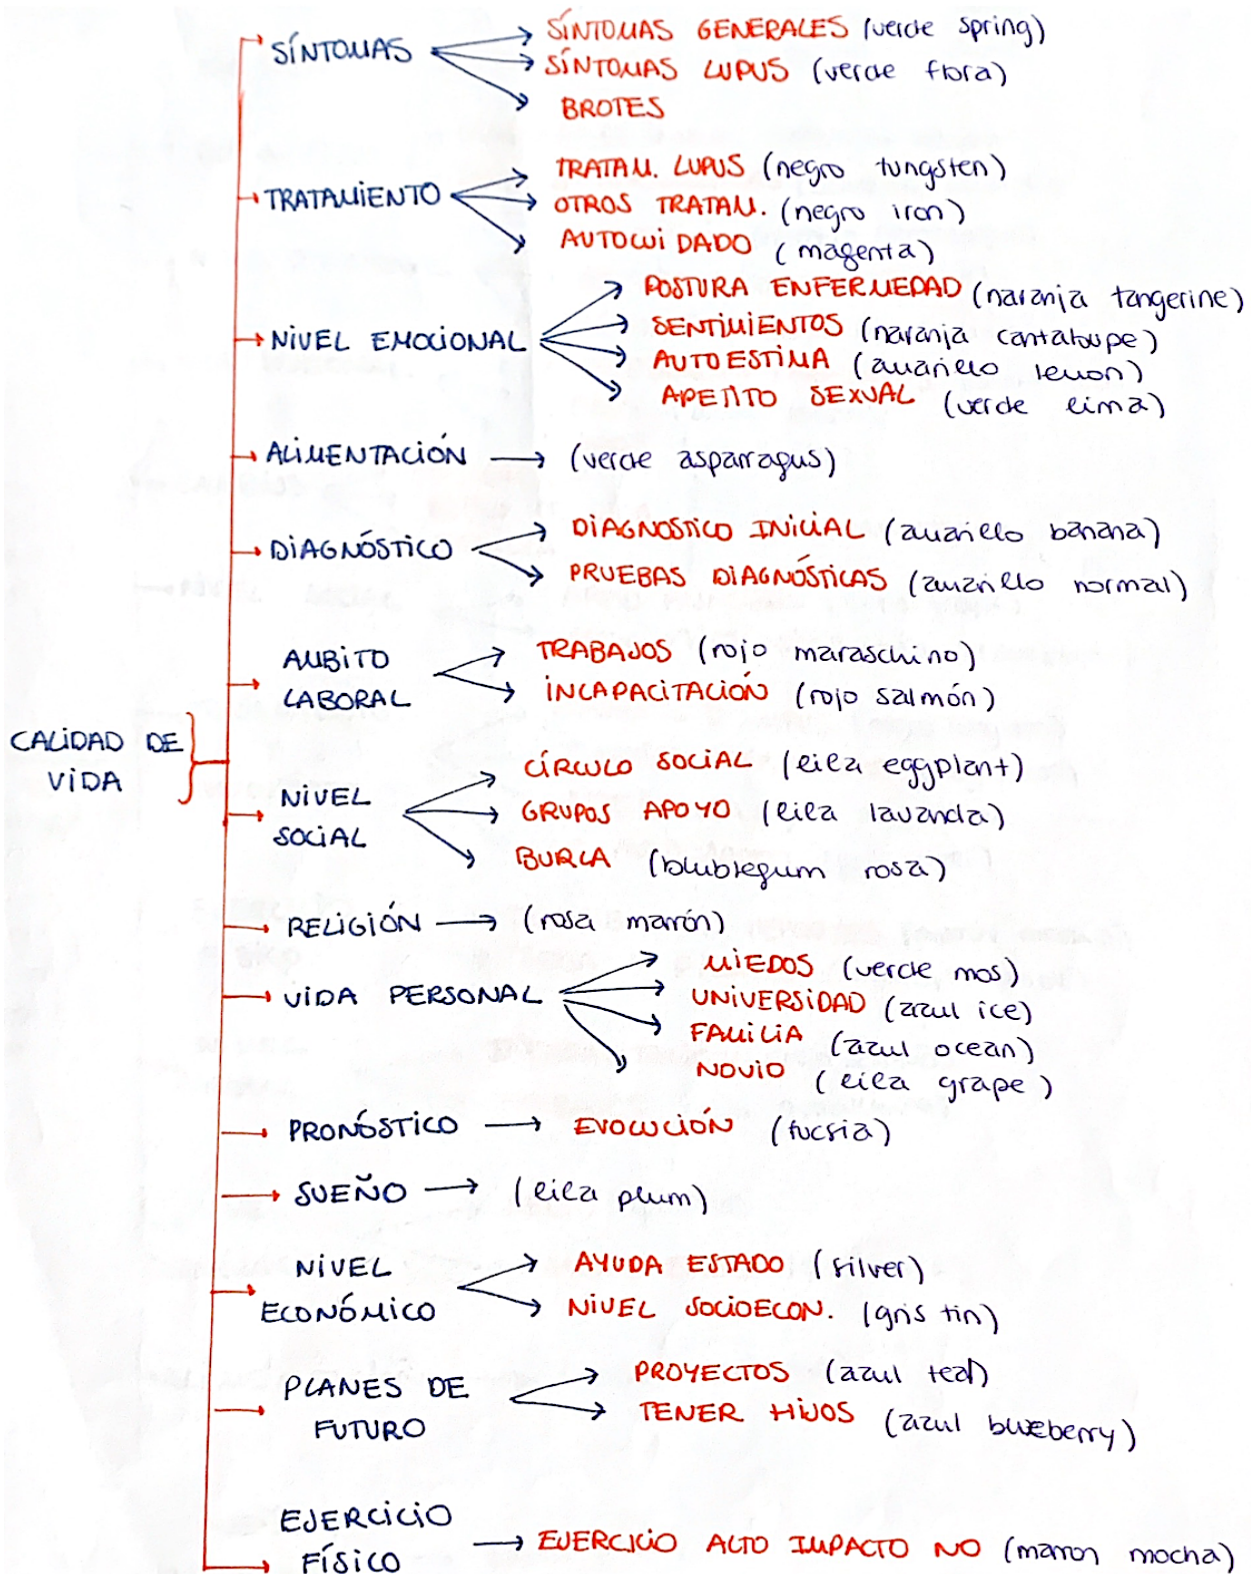 SÍNTOMAS
SÍNTOMAS GENERALES (verde spring)
SÍNTOMAS LUPUS (verde flora)
BROTES
TRATAMIENTO
TRATAM. LUPUS (negro tungsten)
OTROS TRATAM. (negro iron)
AUTOCUIDADO (magenta)
NIVEL EMOCIONAL
POSTURA ENFERMEDAD (naranja tangerine)
SENTIMIENTOS (naranja cantaloupe)
AUTOESTIMA (amarillo lemon)
APETITO SEXUAL (verde lima)
ALIMENTACIÓN
(verde asparragus)
DIAGNÓSTICO
DIAGNOSTICO INICIAL (amarillo banana)
PRUEBAS DIAGNÓSTICAS (amarillo normal)
AMBITO
LABORAL
TRABAJOS (rojo maraschino)
INCAPACITACIÓN (rojo salmón)
CALIDAD DE
VIDA
NIVEL
SOCIAL
CÍRCULO SOCIAL (lila eggplant)
GRUPOS APOYO (lila lavanda)
BURLA (blublegum rosa)
RELIGIÓN
(rosa marrón)
VIDA PERSONAL
MIEDOS (verde mos)
UNIVERSIDAD (azul ice)
FAMILIA (azul ocean)
NOVIO (lila grape)
PRONÓSTICO
EVOLUCIÓN (fucsia)
SUEÑO
(lila plum)
NIVEL
ECONÓMICO
AYUDA ESTADO (silver)
NIVEL SOCIOECON. (gris tin)
PLANES DE
FUTURO
PROYECTOS (azul teal)
TENER HIJOS (azul blueberry)
EJERCICIO
FÍSICO
EJERCICIO ALTO IMPACTO NO (marron mocha)